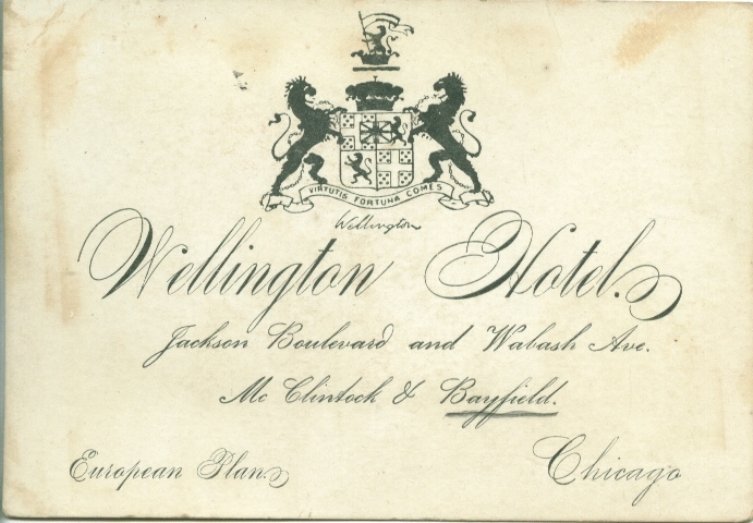 VIRTUTIS FORTUNA COMES
Wellington
Wellington Hotel.
Jackson Boulevard and Wabash Ave.
Mc Clintock & Bayfield.
European Plan.
Chicago